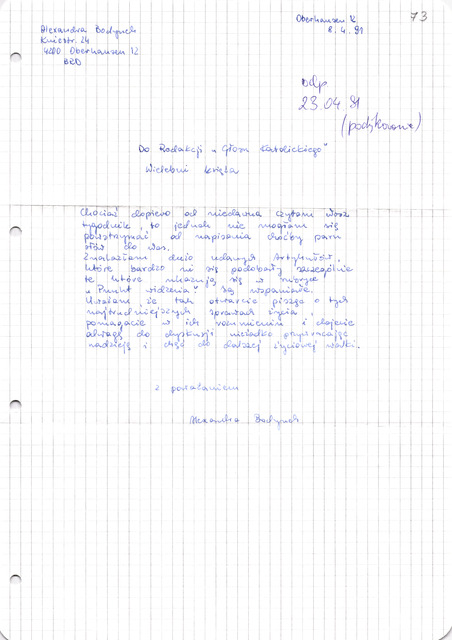 73
Oberhausen
8.4.91
Alexandra Bodynek
24
4200 Oberhausen 12
BRD
odp
23.04.91
(podziękowano)
Do Redakcji "Głosu Katolickiego"
Wielebni księża
Chociaż dopiero od niedawna czytam Wasz
tygodnik, to jednak nie mogłam się
powstrzymać od napisania choćby paru
słów do Was.
Znalazłam dużo udanych Artykułów,
które bardzo mi się podobały szczególnie
te które ukazują się w rubryce
"Punkt widzenia" są wspaniałe.
Uważam, że tak otwarcie pisząc o tych
najtrudniejszych sprawach życia,
pomagacie w ich zrozumieniu i dajecie
do dyskusji przywracając
nadzieję i chęć do dalszej życiowej walki.
z poważaniem
Alexandra